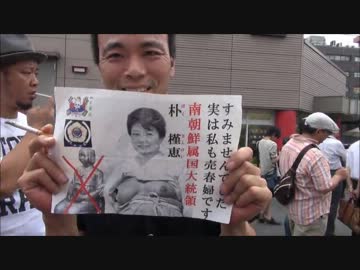 すみませんでした
実は私も売春婦です
南朝鮮属国大統領
朴 槿恵